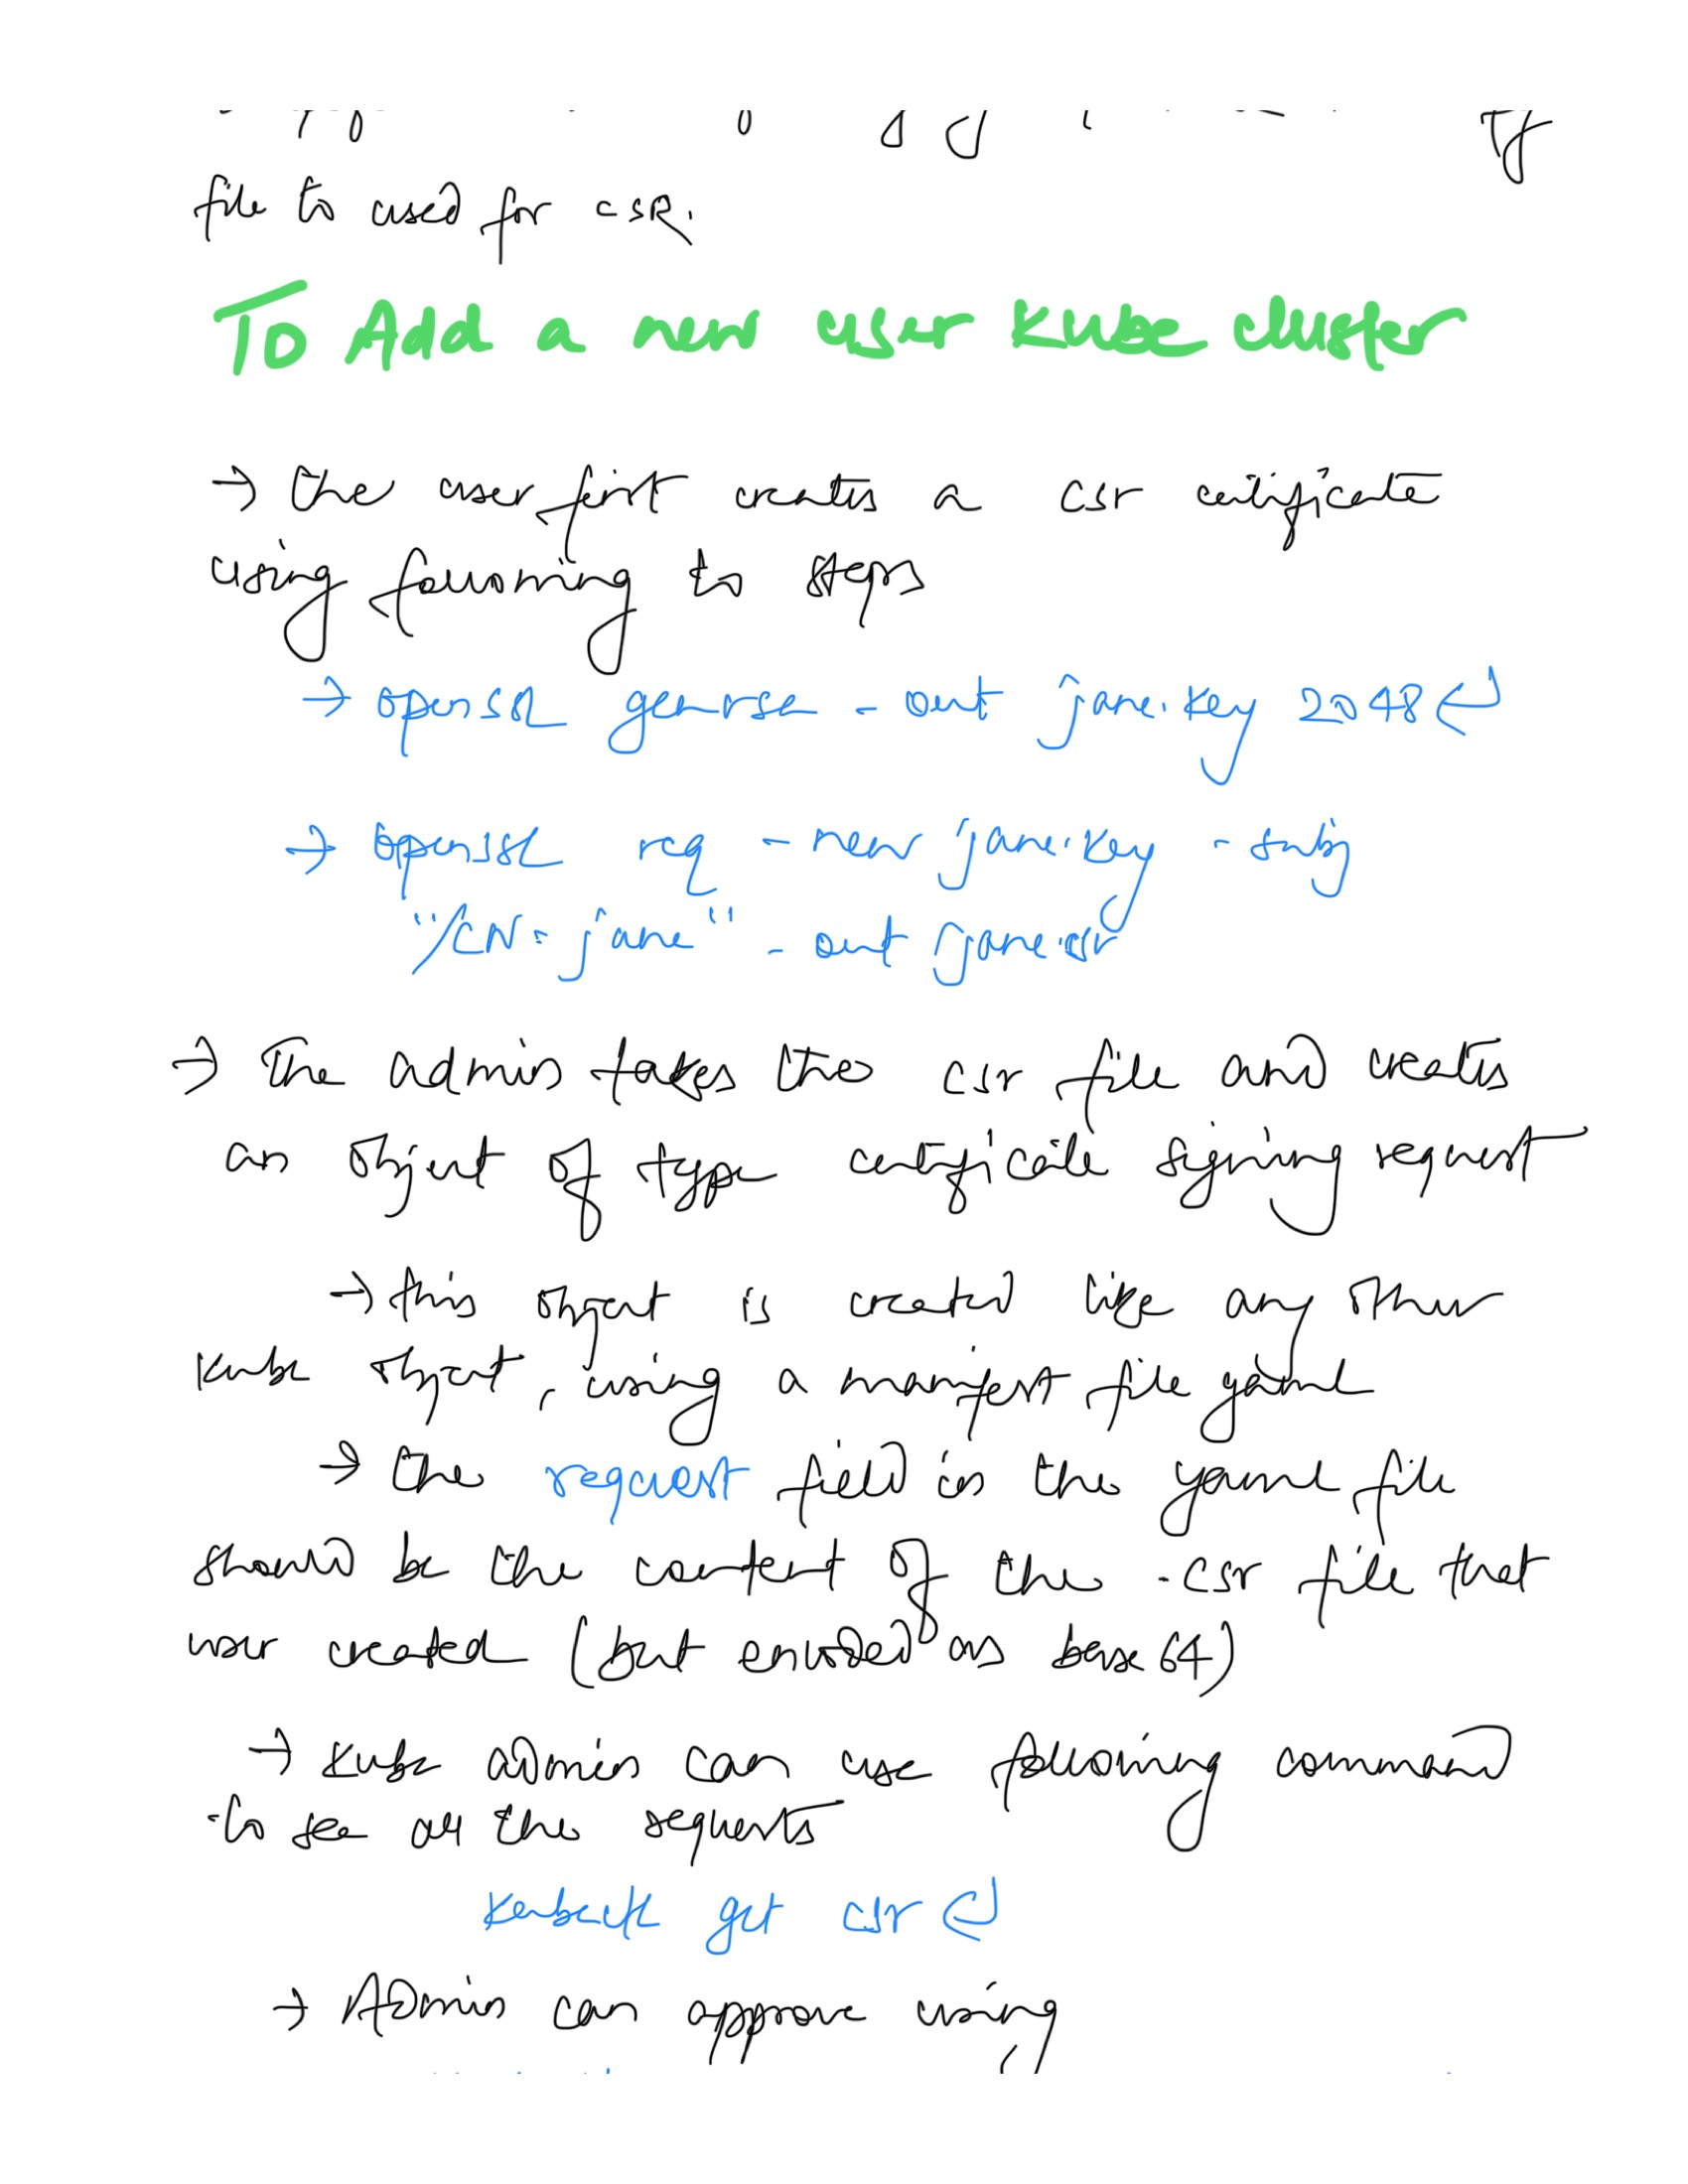 file to used for CSR.
To Add a new user Kube cluster
→ the user first creates a csr certificate
using following to steps
→ openssl genrsa -out jane.key 2048 ↵
→ openssl req -new jane.key -subj
"/CN=jane" -out jane.csr
→ The admin takes the csr file and creates
an object of type certificate signing request
→ this object is created like any other
Kube object, using a manifest file yaml
→ the request field in the yaml file
should be the content of the .csr file that
user created (but encoded as base 64)
→ Kube admin can use following command
to see all the requests
kubectl get csr ↵
→ Admin can approve using